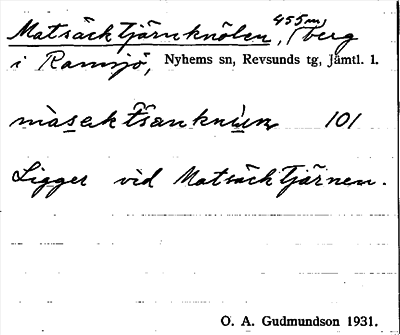 Matsäcktjärnknölen, (berg 455 m)
i Ramsjö, Nyhems sn, Revsunds tg, Jämtl. l.
101
Ligger vid Matsäcktjärnen.
O. A. Gudmundson 1931.